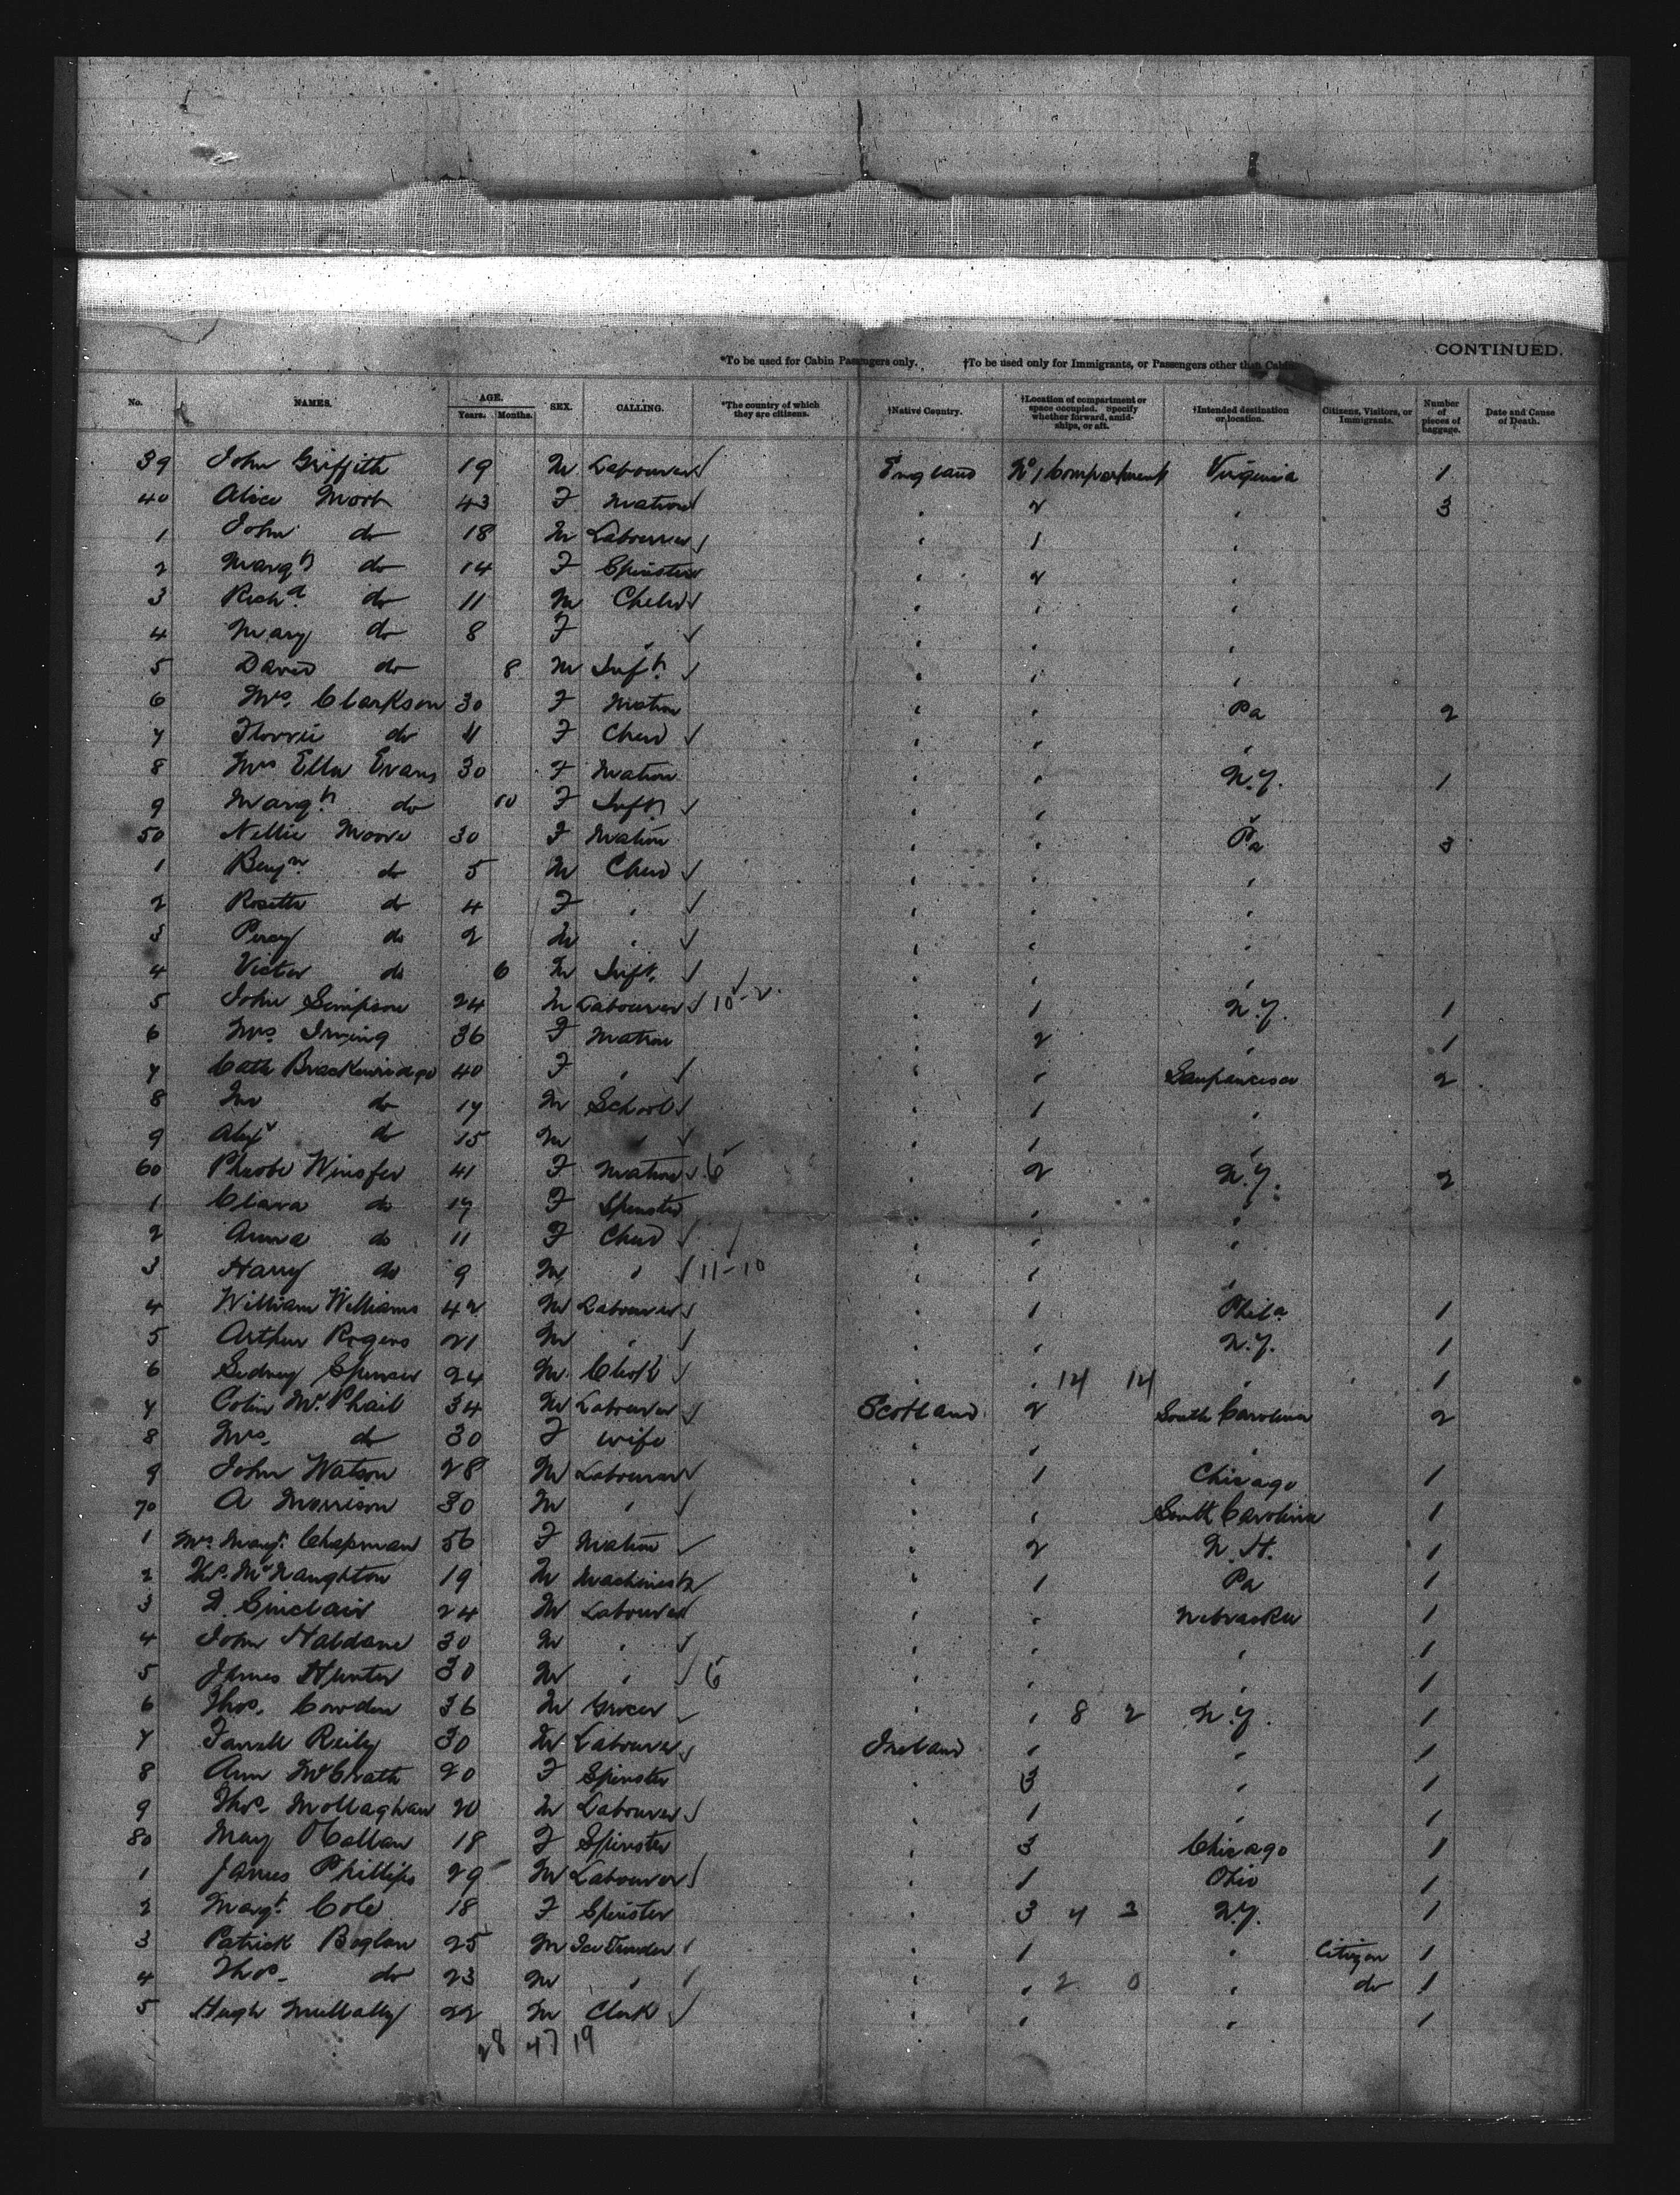 CONTINUED.
*To be used for Cabin Passengers only. †To be used only for Immigrants, or Passengers other than Cabin.
No. NAMES. AGE. Years. Months. SEX. CALLING. *The country of which they are citizens. †Native Country. †Location of compartment or space occupied. Specify whether forward, amidships, or aft. †Intended destination or location. Citizens, Visitors, or Immigrants. Number of pieces of baggage. Date and Cause of Death.
39 John Griffith 19 M Labourer England No 1 Compartment Virginia 1
40 Alice Mort 43 F Matron " 2 " 3
1 John do 18 M Labourer " 1 "
2 Margt do 14 F Spinster " 2 "
3 Richd. do 11 M Child " " "
4 Mary do 8 F " " " "
5 David do 8 M Inft. " " "
6 Mrs. Clarkson 30 F Matron " " Pa 2
7 Florrie do 11 F Child " " "
8 Mrs Ellen Evans 30 F Matron " " N.Y. 1
9 Margt. do 10 F Inft " " "
50 Nellie Moore 30 F Matron " " Pa 3
1 Benjn. do 5 M Child " " "
2 Rosetta do 4 F " " " "
3 Percy do 2 M " " " "
4 Victor do 6 M Inft. " " "
5 John Simpson 24 M Labourer 10-2 " 1 N.Y. 1
6 Mrs. Irving 36 F Matron " 2 " 1
7 Cath Brackenridge 40 F " " " Sanfrancisco 2
8 Jno do 17 M School " 1 "
9 Alexr do 15 M " " 1 "
60 Phoebe 41 F Matron 6 " 2 N.Y. 2
1 Clara do 17 F Spinster " " "
2 Anna do 11 F Child " " "
3 Harry do 9 M " 11-10 " " "
4 William Williams 42 M Labourer " 1 Phila. 1
5 Arthur Rogers 21 M " " " N.Y. 1
6 Sidney Spencer 24 M Clerk " " 14 14 " 1
7 Colin McPhail 34 M Labourer Scotland 2 South Carolina 2
8 Mrs. do 30 F Wife " " "
9 John Watson 28 M Labourer " 1 Chicago 1
70 A Morrison 30 M " " " South Carolina 1
1 Mrs. Margt. Chapman 56 F Matron " 2 N.H. 1
2 McNaughton 19 M Machinest " 1 Pa 1
3 D. Sinclair 24 M Labourer " " Nebraska 1
4 John Haldane 30 M " " " " 1
5 James Hunter 30 M " 6 " " " 1
6 Thos. Cowden 36 M Grocer " " 8 2 N.Y. 1
7 Farrell Reily 30 M Labourer Ireland " " 1
8 Ann McGrath 20 F Spinster " 3 " 1
9 Thos. 20 M Labourer " 1 " 1
80 May 18 F Spinster " 3 Chicago 1
1 James Phillips 29 M Labourer " 1 Ohio 1
2 Margt. Cole 18 F Spinster " 3 4 3 N.Y. 1
3 Patrick Boglan 25 M " 1 " Citizen 1
4 Thos. do 23 M " " " 2 0 " do 1
5 Hugh Mullally 22 M Clerk " " " 1
28 47 19